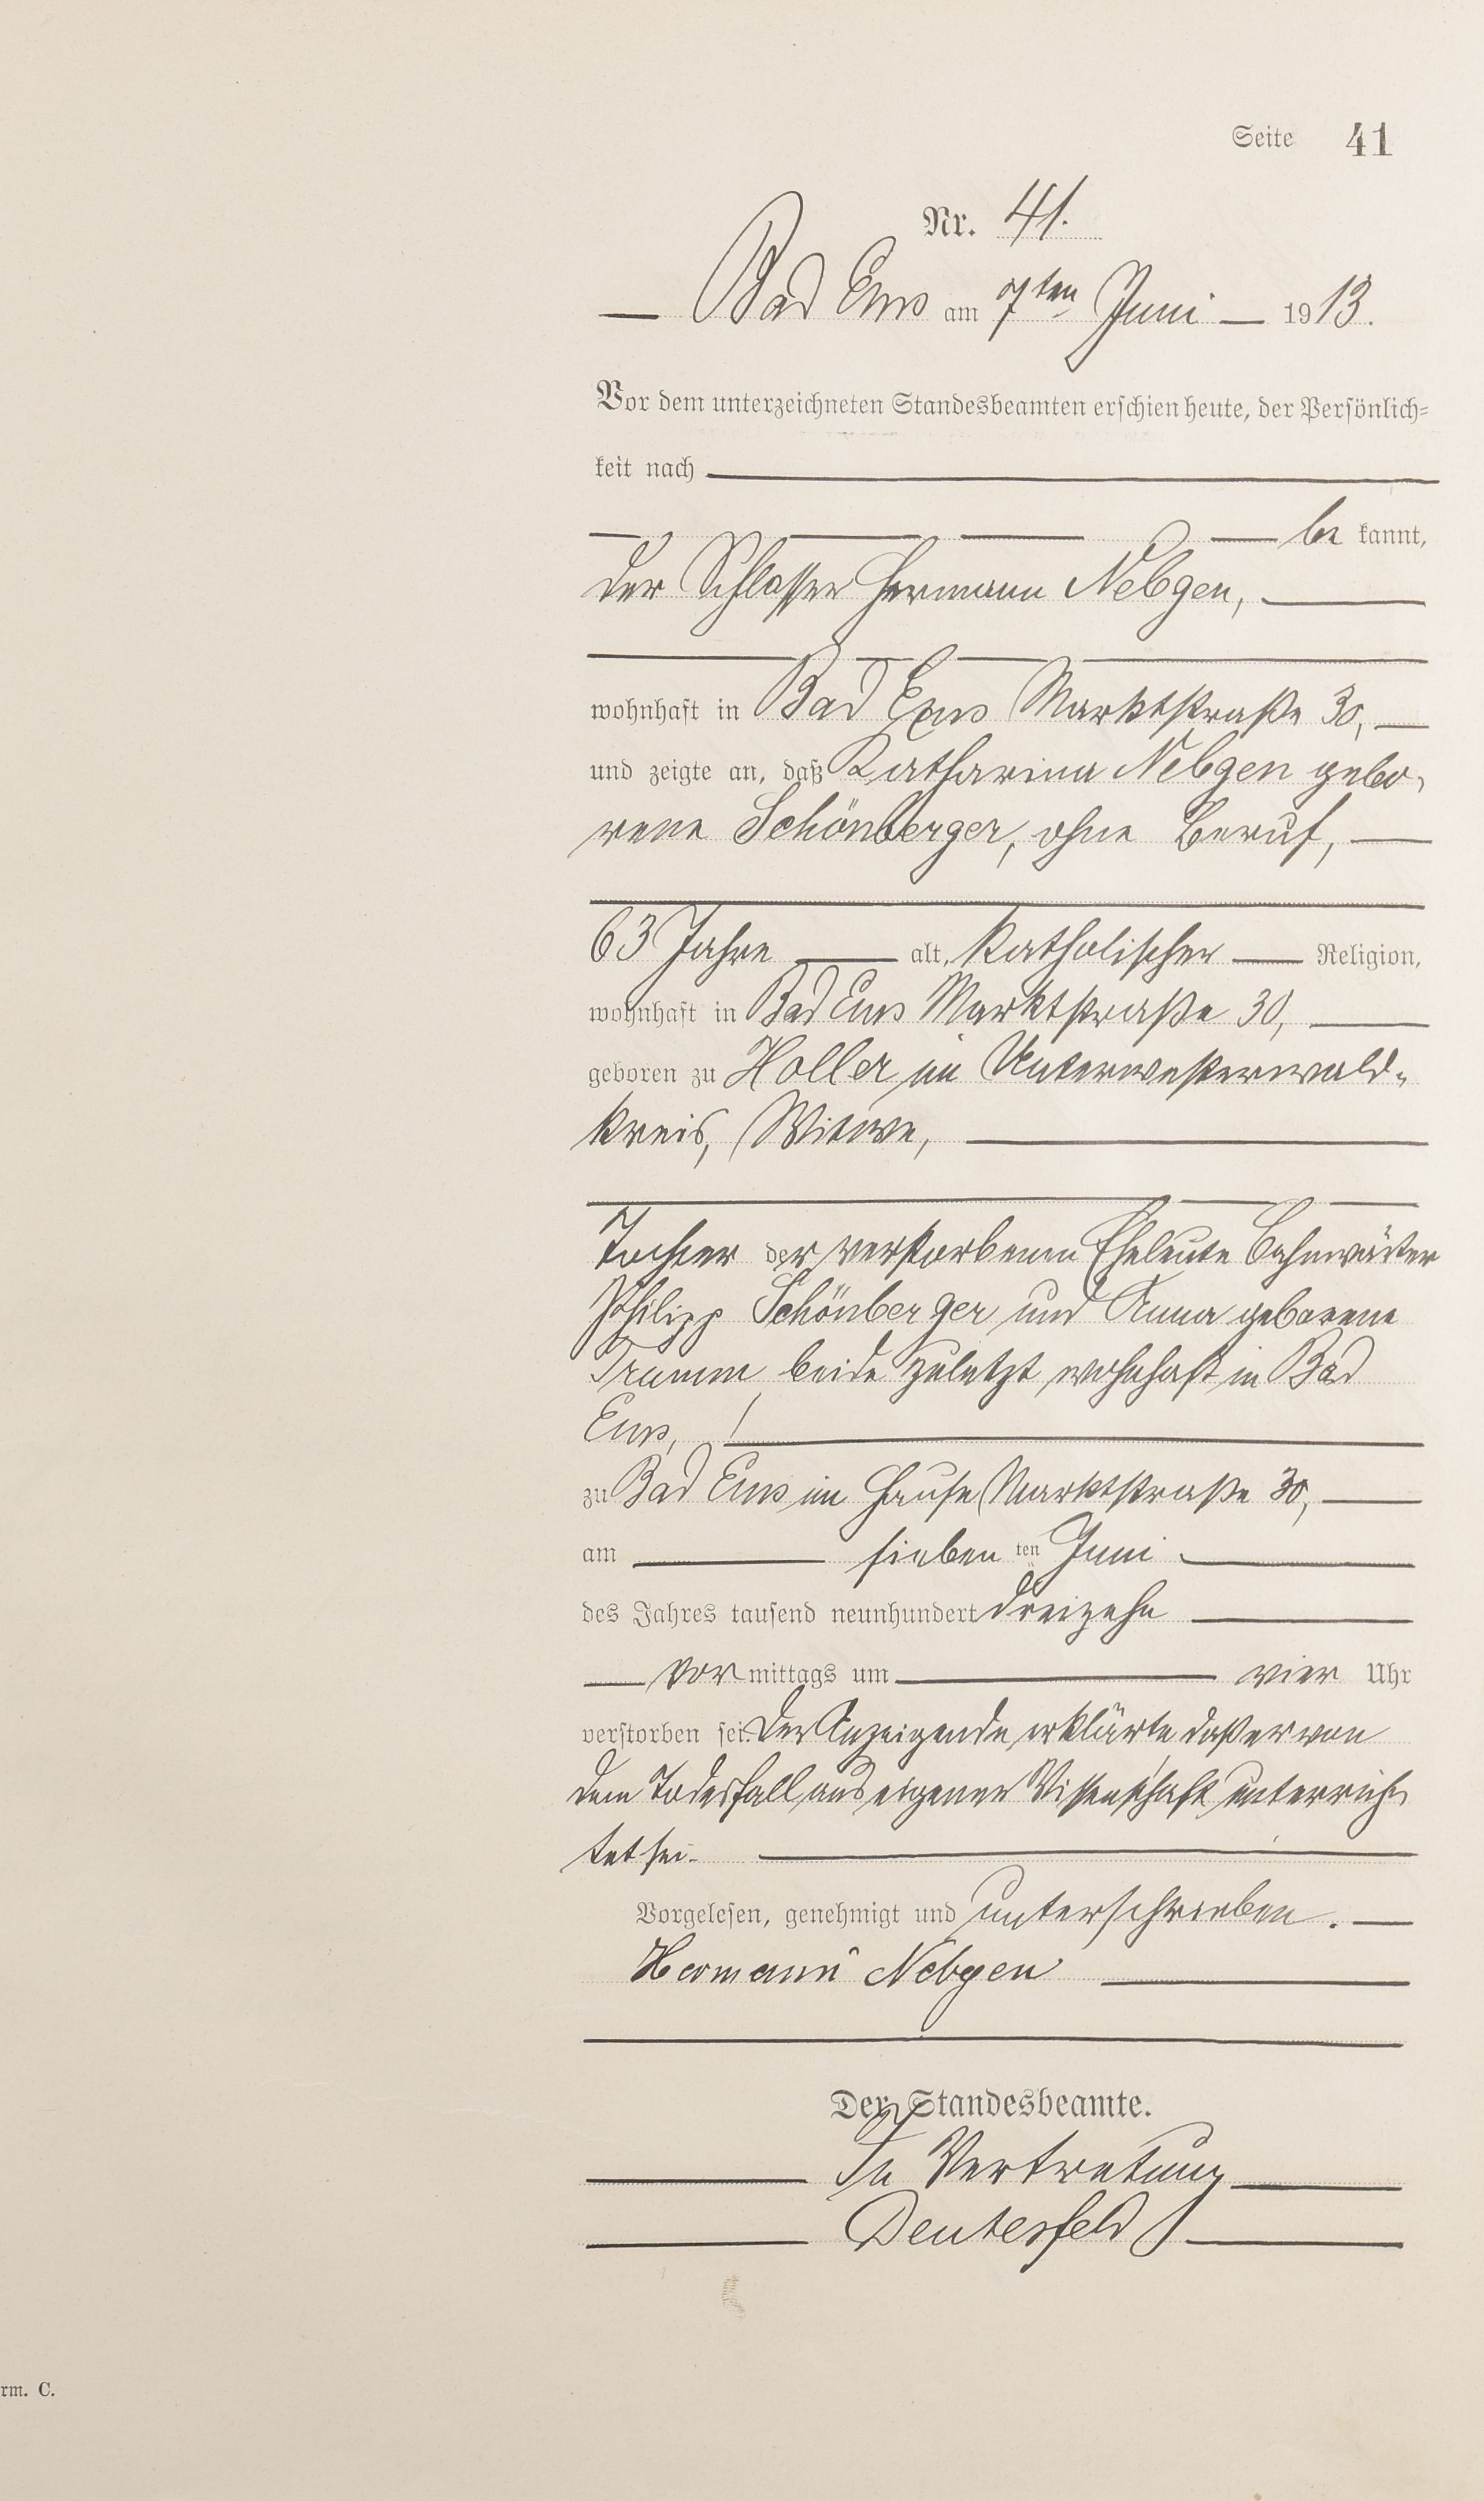 Seite 41
Nr. 41.
Bad Ems am 7ten Juni 1913.
Vor dem unterzeichneten Standesbeamten erschien heute, der Persönlich-
keit nach
be kannt,
der Schlosser Hermann Nebgen,
wohnhaft in Bad Ems Marktstraße 30,
und zeigte an, daß Katharina Nebgen gebo-
rene Schönberger, ohne Beruf,
63 Jahre alt, katholischer Religion,
wohnhaft in Bad Ems Marktstraße 30,
geboren zu Holler im Unterwesterwald-
kreis, Witwe,
Tochter der verstorbenen Eheleute Bahnwärter
Philipp Schönberger und Anna geborene
Tramm beide zuletzt wohnhaft in Bad
Ems,
zu Bad Ems im Hause Marktstraße 30,
am sieben ten Juni
des Jahres tausend neunhundert dreizehn
vor mittags um vier Uhr
verstorben sei. Der Anzeigende erklärte daß er von
dem Todesfall aus eigener Wissenschaft unterrich-
tet sei.
Vorgelesen, genehmigt und unterschrieben.
Hermann Nebgen
Der Standesbeamte.
In Vertretung
Deutesfeld
rm. C.